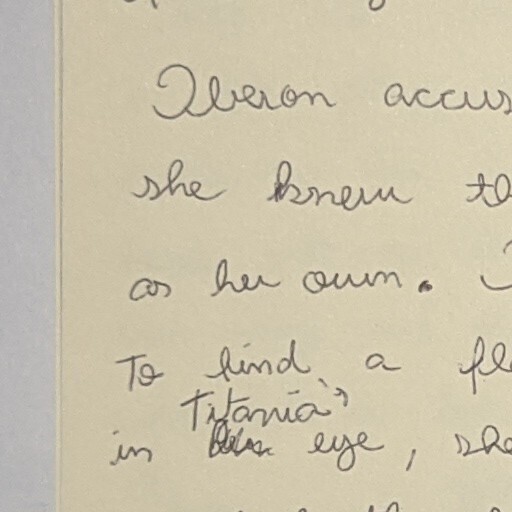 Oberon accus
she knew th
as her own.
To find a fl
Titania's
in eye, she